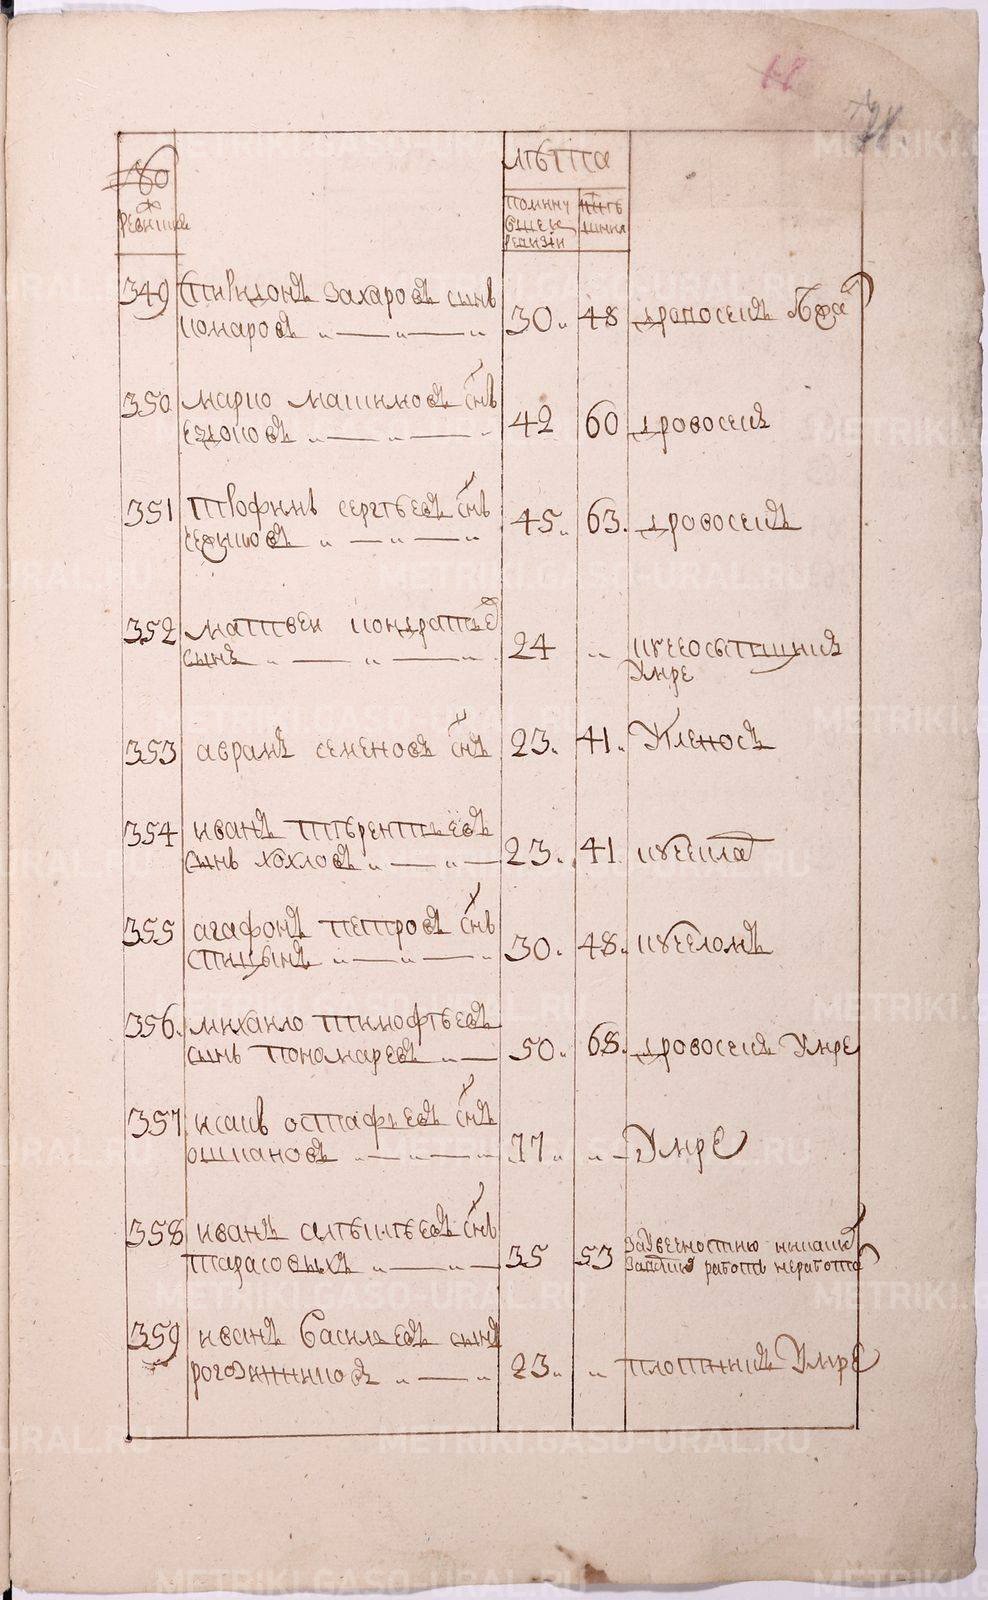 68
78
№
ревиски
лѣта
помину
вшеи
ревизии
нынѣ
шния
349 Спиридонъ Захаровъ сынъ
комаровъ 30 48 дровосекъ
350 марко макимовъ снъ
ездоковъ 42 60 дровосекъ
351 Трофимъ сергѣевъ снъ
45 63 дровосекъ
352 матвеи кондратьев
сынъ 24 кучеосыпщикъ
умре
353 аврамъ семеновъ снъ 23 41 Угленосъ
354 иванъ терентьевъ
сынъ хохловъ 23 41
355 агафонъ петровъ снъ
спицынъ 30 48 кучеломъ
356 михаило тимофѣевъ
сынъ пономаревъ 50 68 дровосекъ умре
357 исакъ остафьевъ снъ
ошкановъ 77 умре
358 иванъ алѣксѣевъ снъ
тарасовыхъ 35 53 За увечностию никакои
заводскои работы неработа
359 иванъ василевъ сынъ
рогожниковъ 23 плотникъ умре
METRIKI.GASO-URAL.RU